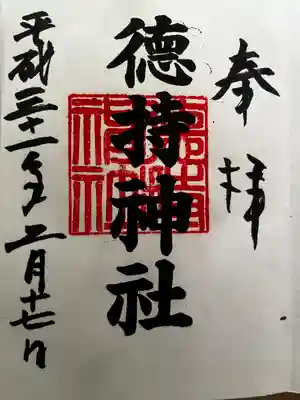 奉拝
徳持神社
平成三十一年二月十七日